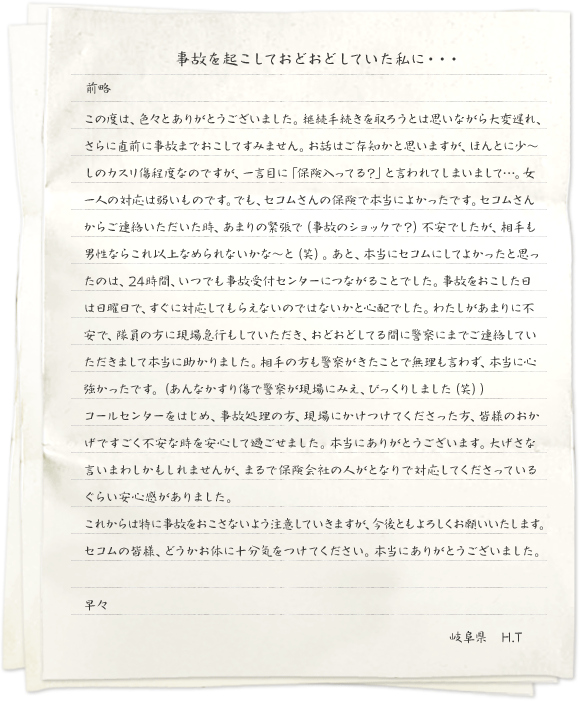 事故を起こしておどおどしていた私に・・・
前略
この度は、色々とありがとうございました。継続手続きを取ろうとは思いながら大変遅れ、
さらに直前に事故までおこしてすみません。お話はご存知かと思いますが、ほんとに少〜
しのカスリ傷程度なのですが、一言目に「保険入ってる？」と言われてしまいまして…。女
一人の対応は弱いものです。でも、セコムさんの保険で本当によかったです。セコムさん
からご連絡いただいた時、あまりの緊張で（事故のショックで？）不安でしたが、相手も
男性ならこれ以上なめられないかな〜と（笑）。あと、本当にセコムにしてよかったと思っ
たのは、24時間、いつでも事故受付センターにつながることでした。事故をおこした日
は日曜日で、すぐに対応してもらえないのではないかと心配でした。わたしがあまりに不
安で、隊員の方に現場急行もしていただき、おどおどしてる間に警察にまでご連絡してい
ただきまして本当に助かりました。相手の方も警察がきたことで無理も言わず、本当に心
強かったです。（あんなかすり傷で警察が現場にみえ、びっくりしました（笑））
コールセンターをはじめ、事故処理の方、現場にかけつけてくださった方、皆様のおか
げですごく不安な時を安心して過ごせました。本当にありがとうございます。大げさな
言いまわしかもしれませんが、まるで保険会社の人がとなりで対応してくださっている
ぐらい安心感がありました。
これからは特に事故をおこさないよう注意していきますが、今後ともよろしくお願いいたします。
セコムの皆様、どうかお体に十分気をつけてください。本当にありがとうございました。
早々
岐阜県　H.T